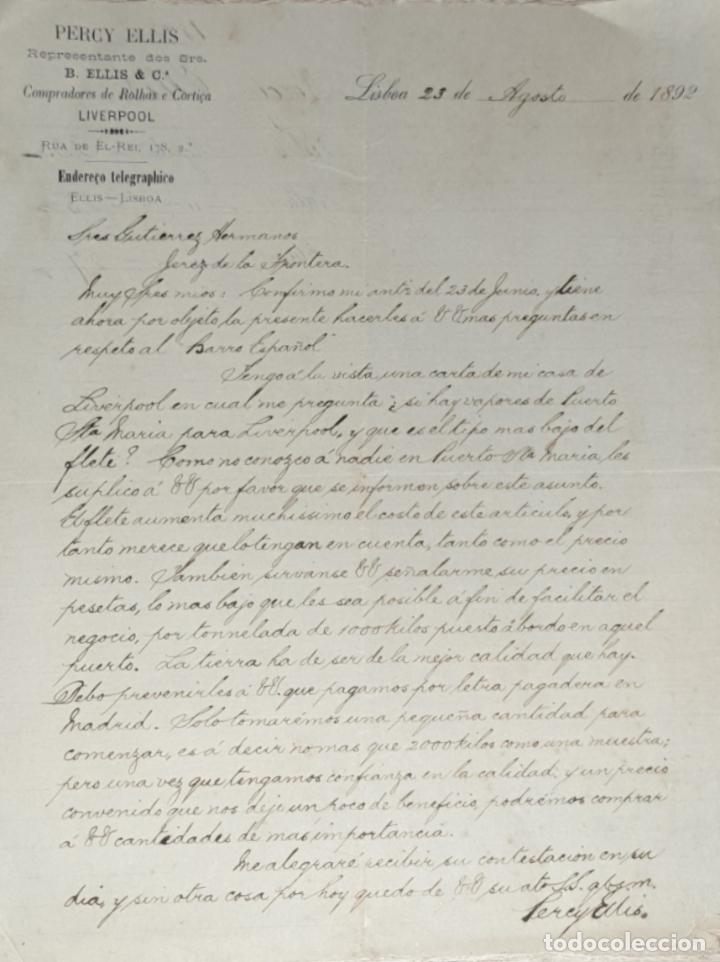 PERCY ELLIS
Representante dos Srs.
B. ELLIS & C.ª
Compradores de Rolhas e Cortiça
LIVERPOOL
RUA DE EL-REI, 178, 2.º
Endereço telegraphico
ELLIS — LISBOA
Lisboa 23 de Agosto de 1892
Sres Gutierrez Hermanos
Jerez de la Frontera.
Muy Sres mios: Confirmo mi antr del 23 de Junio, y tiene
ahora por objeto, la presente hacerles á VV mas preguntas en
respeto al "Barro Español"
Tengo á la vista una carta de mi casa de
Liverpool en cual me pregunta ¿si hay vapores de Puerto
Sta Maria para Liverpool, y que es el tipo mas bajo del
flete? Como no conozco á nadie en Puerto Sta Maria, les
suplico á VV por favor que se informen sobre este asunto.
El flete aumenta muchissimo el costo de este articulo, y por
tanto merece que lo tengan en cuenta, tanto como el precio
mismo. Tambien sirvánse VV señalarme su precio en
pesetas, lo mas bajo que les sea posible á fin de facilitar el
negocio, por tonnelada de 1000 kilos puerto á bordo en aquel
puerto. La tierra ha de ser de la mejor calidad que hay.
Debo prevenirles á VV. que pagamos por letra pagadera en
Madrid. Solo tomarémos una pequeña cantidad para
comenzar, es á decir no mas que 2000 kilos como una muestra;
pero una vez que tengamos confianza en la calidad, y un precio
convenido que nos deje un poco de beneficio, podrémos comprar
á VV cantidades de mas importancia.
Me alegraré recibir su contestacion en su
dia, y sin otra cosa por hoy quedo de VV su ato S.S. q.b.s.m.
Percy Ellis.
todocoleccion.net